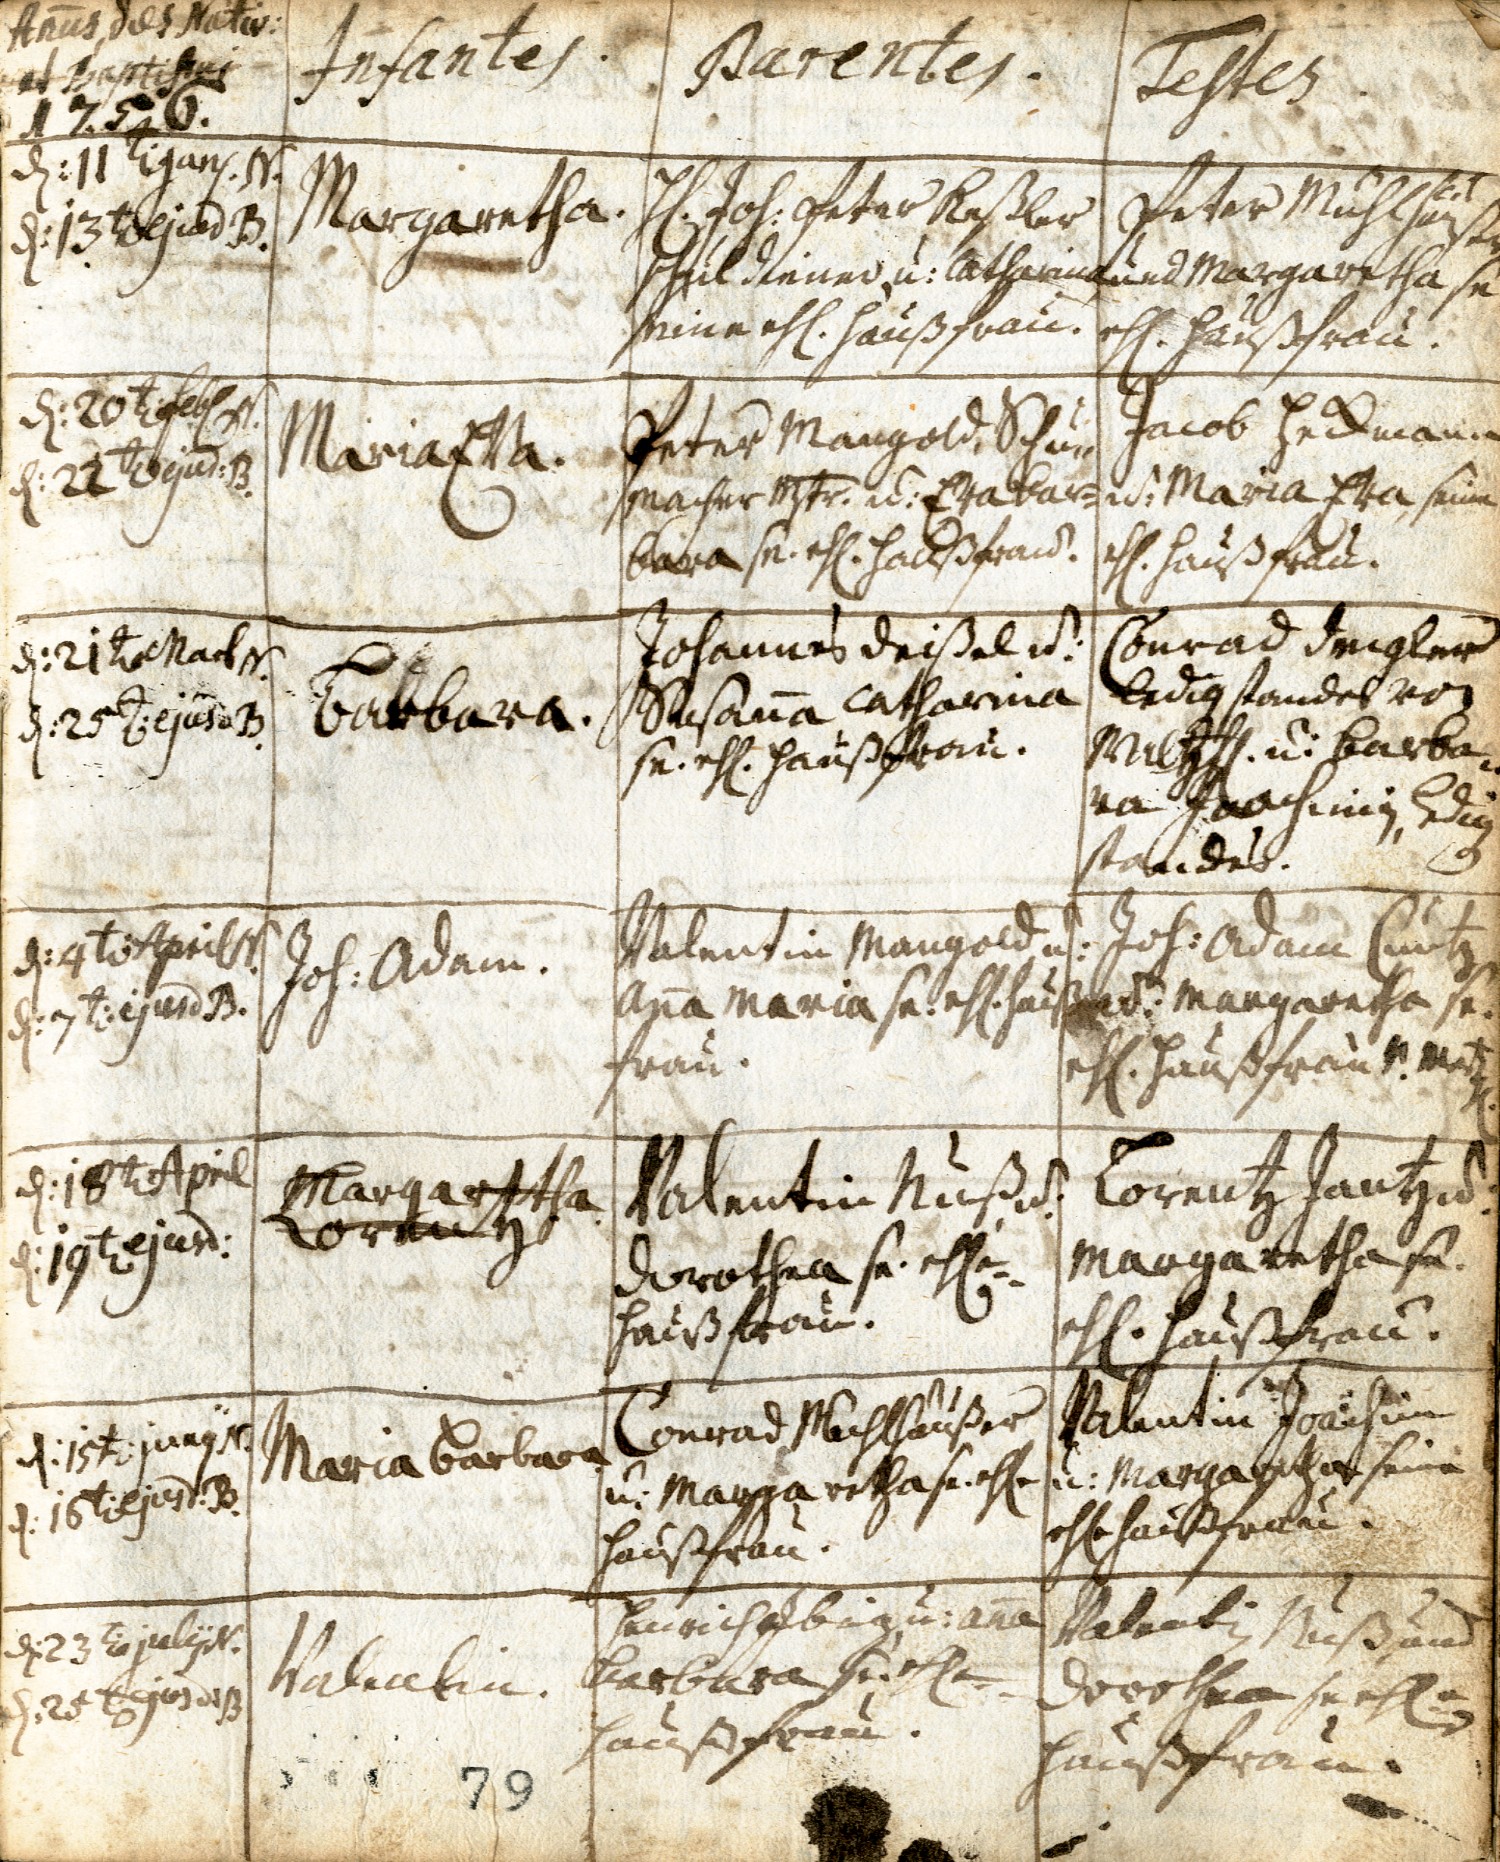 Anus, dies Nativ:
et Baptismi
1756.
Infantes.
Parentes.
Testes
d: 11t: Jan. N.
d: 13t: ejusd B.
Margaretha.
H. Joh: Peter Keßler
Schuldiener, u: Catharina
seine ehl. Haußfrau.
Peter Mühlhäußer
und Margaretha se
ehl. Haußfrau.
d: 20t: Feb. N.
d: 22t: ejusd: B.
Maria Eva.
Peter Mangold, Schu
macher Mstr. u: Eva bar=
bara se. ehl. Haußfrau.
Jacob Heckmann
u: Maria Eva, seine
ehl. Haußfrau.
d: 21t: Marti N.
d: 25t: ejusd B.
Barbara.
Johannes Deißel u:
Susana Catharina
se. ehl. Haußfrau.
Conrad
ledig standes von
u: barba
ra Joachimin, ledig
standes.
d: 4t: April N.
d: 7t: ejusd B.
Joh: Adam.
Valentin Mangold u:
Ana Maria se: ehl. Hauß
frau.
Joh: Adam Curtz
u: Margaretha se.
ehl. Haußfrau v.
d: 18t: April
d: 19t: ejusd:
Margaretha
Lorentz.
Valentin Nuß u:
Dorothea se. ehle
Haußfrau.
Lorentz Jantz u:
Margaretha se.
ehl. Haußfrau.
d: 15t: Junij N.
d: 16t: ejusd: B.
Maria barbara
Conrad Mühlhäußer
u: Margaretha se. ehle
Haußfrau.
Valentin Joachim
u: Margaretha seine
ehle Haußfrau.
d: 23t: Julij N.
d: 25t: ejusd B
Valentin.
Henrich u: ana
barbara se. ehle
Haußfrau.
Valentin Nuß und
Dorothea se ehle
Haußfrau.
79